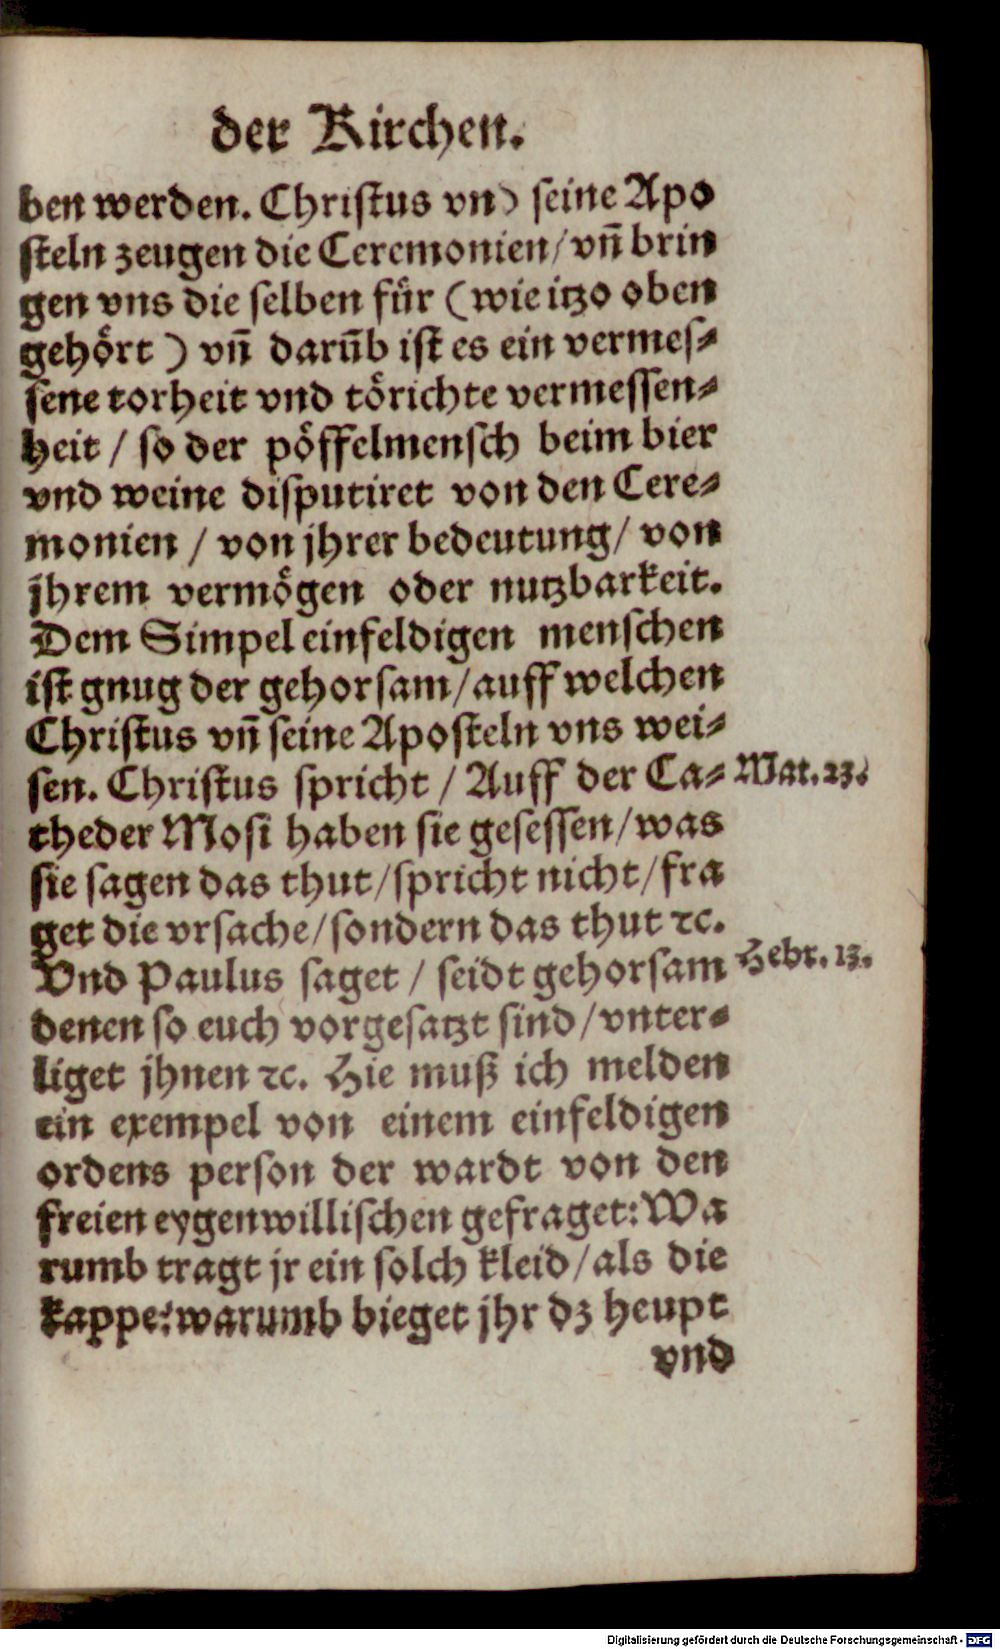 der Kirchen.
ben werden. Christus vnd seine Apo
steln zeugen die Ceremonien/ vn̄ brin
gen vns die selben für (wie itzo oben
gehört) vn̄ darūb ist es ein vermes-
sene torheit vnd törichte vermessen-
heit / so der pöffelmensch beim bier
vnd weine disputiret von den Cere-
monien / von jhrer bedeutung/ von
jhrem vermögen oder nutzbarkeit.
Dem Simpel einfeldigen menschen
ist gnug der gehorsam/ auff welchen
Christus vn̄ seine Aposteln vns wei-
sen. Christus spricht / Auff der Ca- Mat. 23.
theder Mosi haben sie gesessen/ was
sie sagen das thut/ spricht nicht/ fra
get die vrsache/ sondern das thut ꝛc.
Vnd Paulus saget / seidt gehorsam Hebr. 13.
denen so euch vorgesatzt sind/ vnter-
liget jhnen ꝛc. Hie muß ich melden
ein exempel von einem einfeldigen
ordens person der wardt von den
freien eygenwillischen gefraget: Wa
rumb tragt jr ein solch kleid/ als die
kappe: warumb bieget jhr dz heupt
vnd
Digitalisierung gefördert durch die Deutsche Forschungsgemeinschaft - DFG